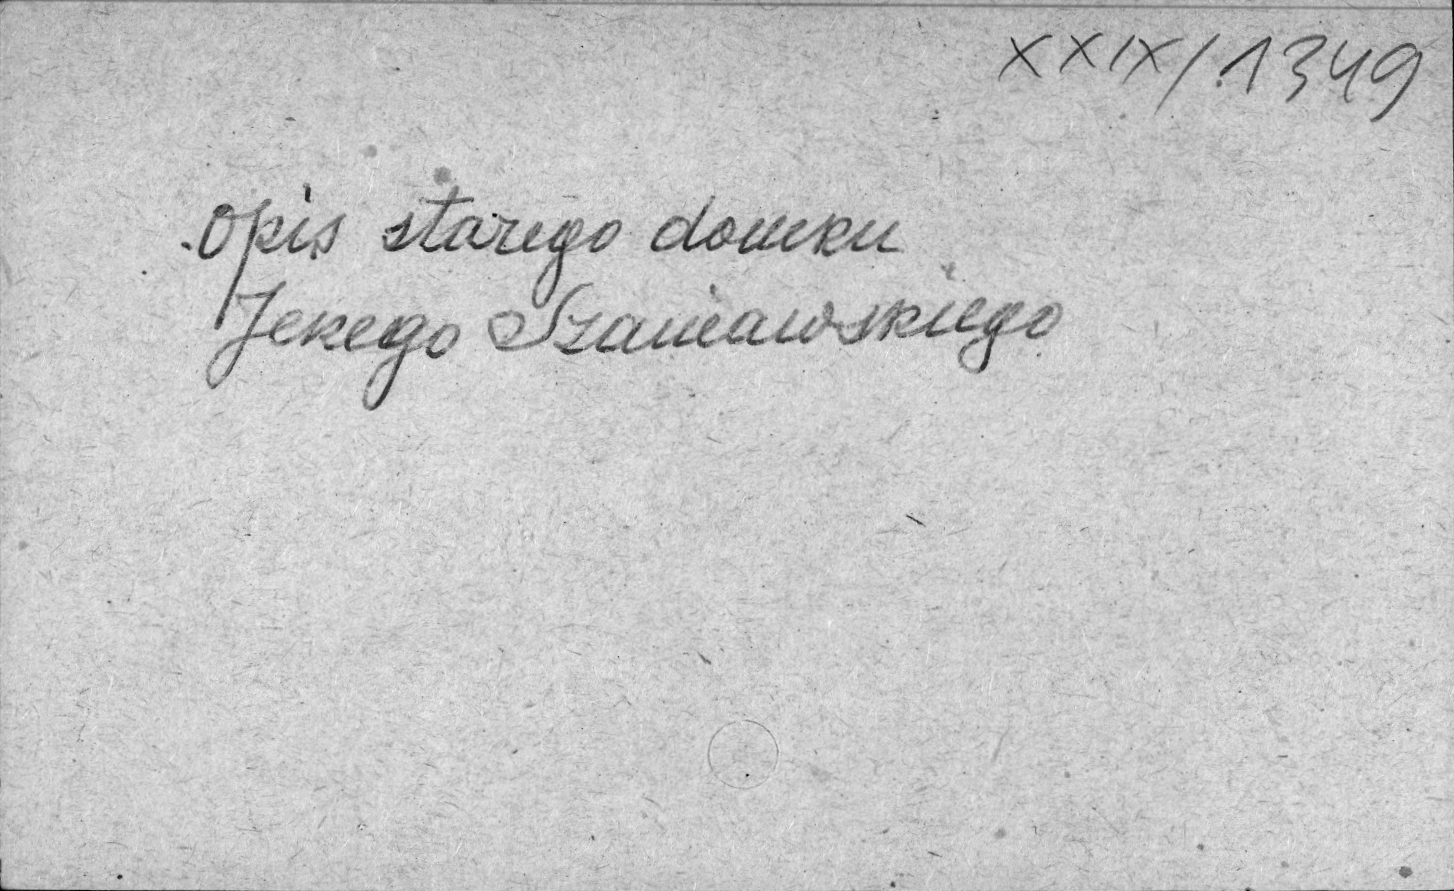 XXIX/1349
Opis starego domku
Jerzego Szaniawskiego